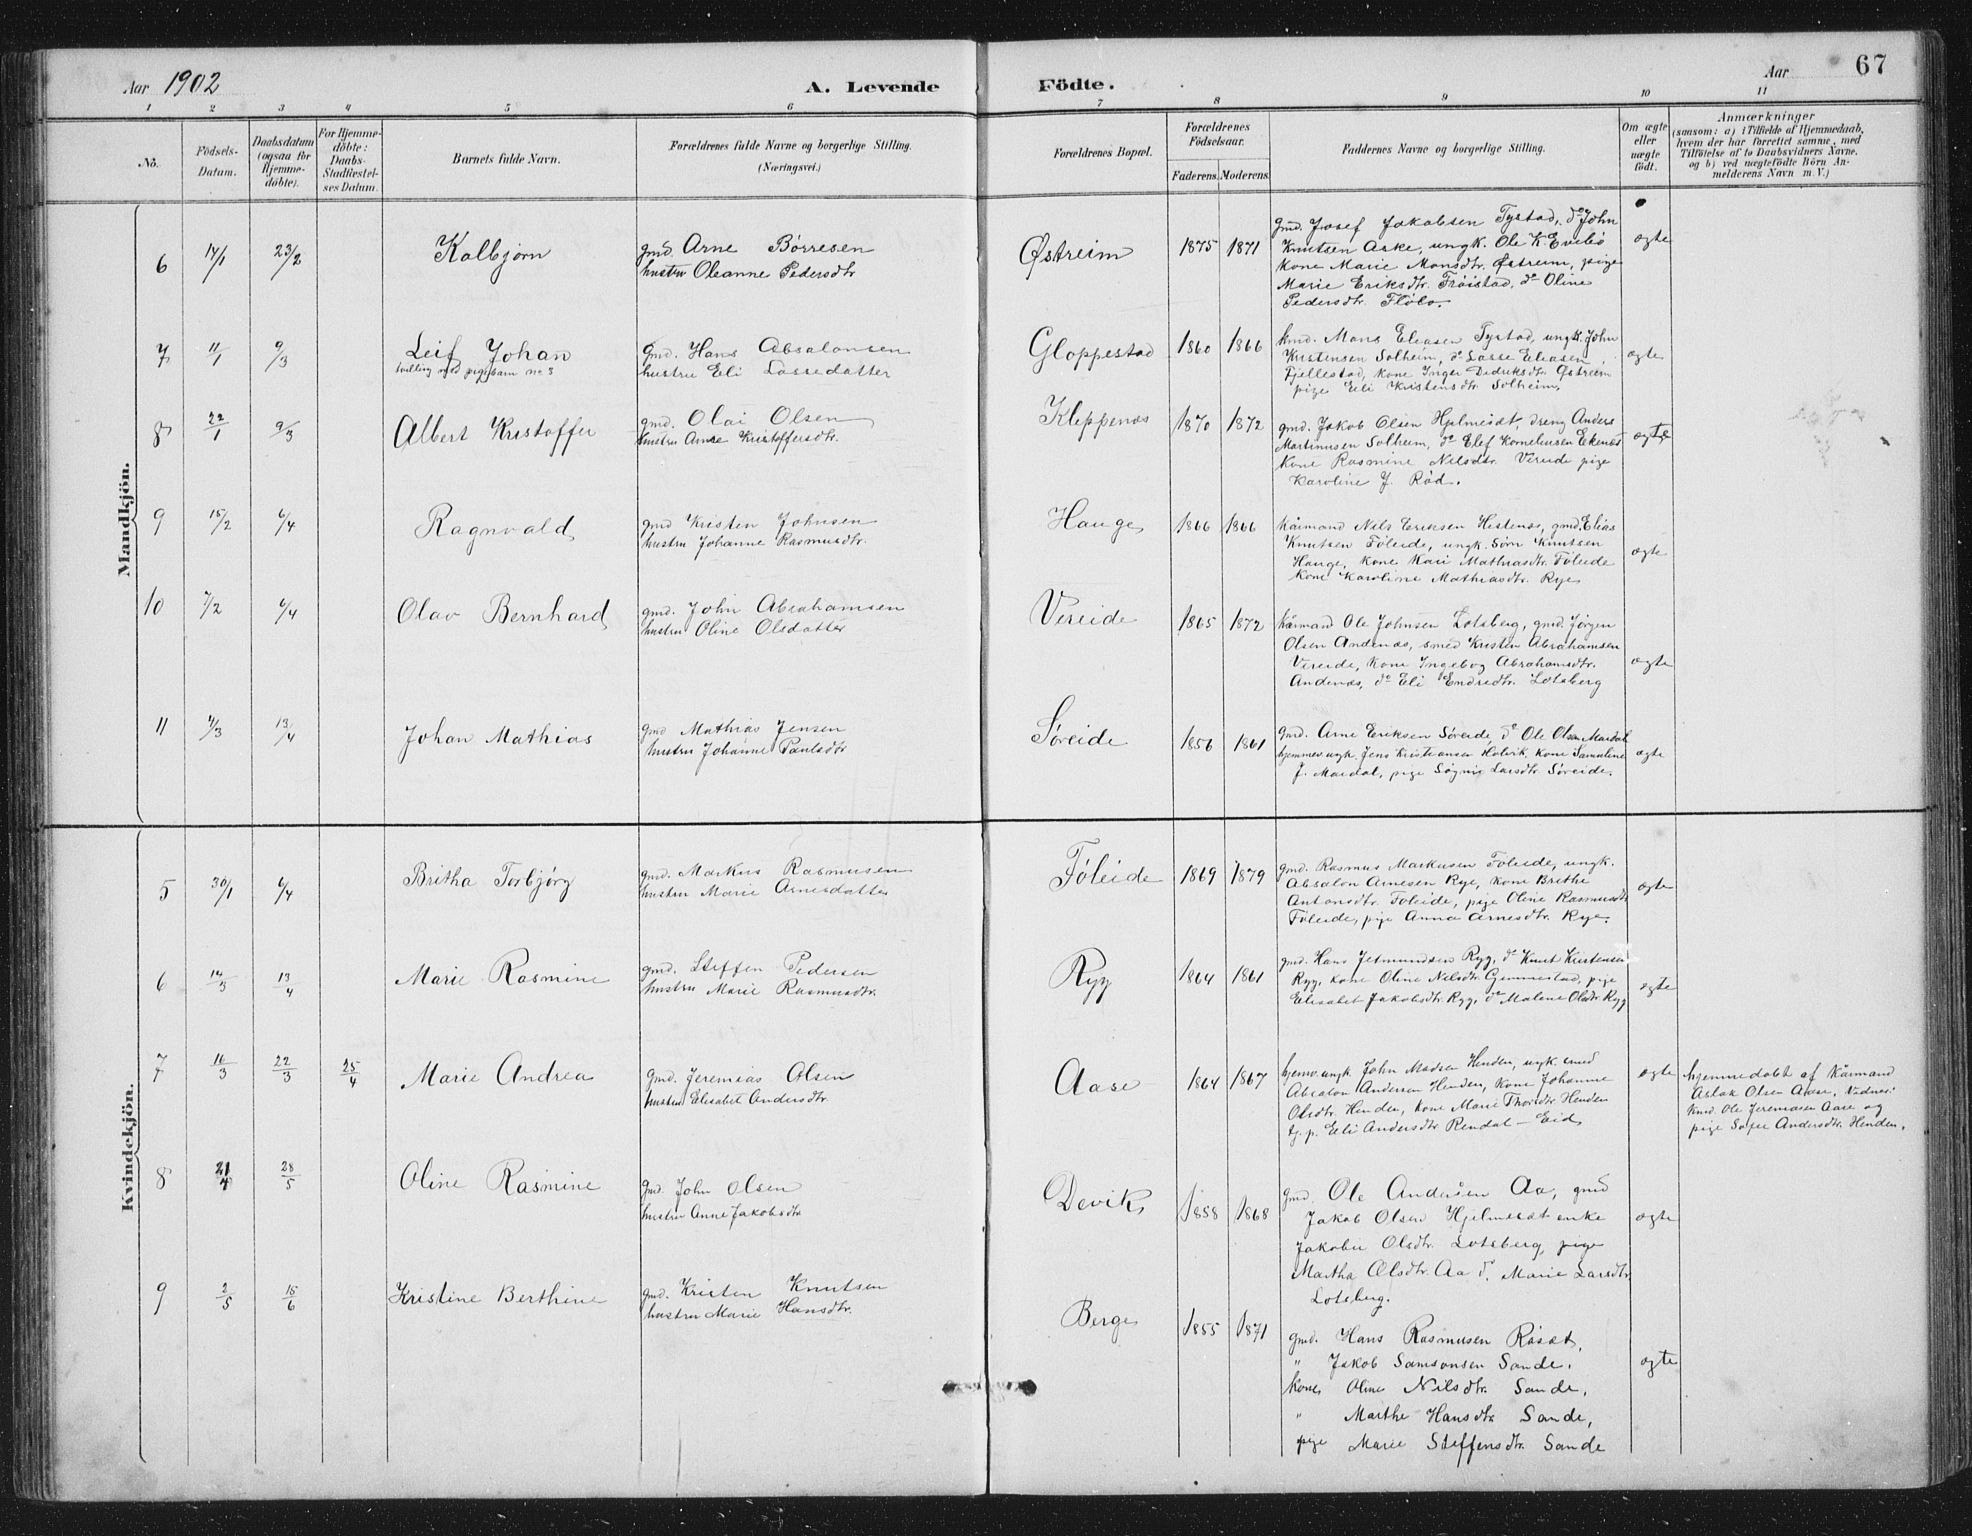 Aar 1902
A. Levende Födte.
Aar
67
1 2 3 4 5 6 7 8 9 10 11
No.
Födsels-
Datum.
Daabsdatum
(ogsaa för
Hjemme-
döbte).
For Hjemme-
döbte:
Daabs-
Stadfæstel-
ses Datum.
Barnets fulde Navn.
Forældrenes fulde Navne og borgerlige Stilling.
(Næringsvei.)
Forældrenes Bopæl.
Forældrenes
Födselsaar.
Faderens. Moderens.
Faddernes Navne og borgerlige Stilling.
Om ægte
eller
uægte
födt.
Anmærkninger
(saasom: a) i Tilfælde af Hjemmedaab,
hvem der har forrettet samme, med
Tilföielse af to Daabsvidners Navne.
og b) ved uægtefödte Börn An-
melderens Navn m. V.)
Mandkjön.
6 14/1 23/2 Kolbjørn
gmd. Arne Børresen
hustru Oleanne Pedersdtr
Østreim 1875 1871
gmd. Josef Jakobsen Tystad, do John
Knutsen Aske, ungk. Ole K. Evebø
kone Marie Monsdtr. Østreim, pige
Marie Eriksdtr. Trøistad, do Oline
Pedersdtr. Fløto.
ægte
7 11/1 9/3 Leif Johan
tvilling med pigebarn no 3
gmd. Hans Absalonsen
hustru Eli Lassedatter
Gloppestad 1860 1866
kmd. Mons Eliasen Tystad, ungk. John
Kristensen Solheim, do Lasse Eliasen
Fjellestad, kone Inger Didriksdtr. Østreim
pige Eli Kristensdtr. Solheim.
ægte
8 22/1 9/3 Albert Kristoffer
gmd. Olai Olsen
hustru Anne Kristoffersdtr.
Kleppenæs 1870 1872
gmd. Jakob Olsen Hjelmesæt, dreng Anders
Martinusen Solheim, do Elef Korneliusen Ekenæs
Kone Rasmine Nilsdtr. Vereide pige
Karoline J. Rød.
ægte
9 15/2 6/4 Ragnvald
gmd Kristen Johnsen
hustru Johanne Rasmusdtr.
Hauge 1866 1866
Kårmand Nils Eriksen Hestenæs, gmd. Elias
Knutsen Føleide, ungk. Sørn Knutsen
Hauge, kone Kari Mathiasdtr. Føleide
kone Karoline Mathiasdtr. Rye
ægte
10 7/2 6/4 Olav Bernhard
gmd. John Abrahamsen
hustru Oline Olsdatter
Vereide 1865 1872
Kårmand Ole Johnsen Lotsberg, gmd. Jørgen
Olsen Andenæs, smed Kristen Abrahamsen
Vereide, kone Ingebog Abrahamsdtr.
Andenæs, do Eli Endredtr. Lotsberg
ægte
11 4/3 13/4 Johan Mathias
gmd Mathias Jensen
hustru Johanne Paulsdtr
Søreide 1856 1861
gmd. Arne Eriksen Søreide, do Ole Olsen Mardal
hjemmev. ungk. Jens Kristiansen Holvik, kone Samuline
J. Mardal, pige Søgni Larsdtr. Søreide.
ægte
Kvindekjön.
5 30/1 6/4 Britha Torbjørg
gmd. Markus Rasmusen
hustru Marie Arnesdatter
Føleide 1869 1879
gmd. Rasmus Markusen Føleide, ungk.
Absalon Arnesen Rye, kone Brithe
Antonsdtr. Føleide, pige Oline Rasmusdtr
Føleide, pige Anna Arnesdtr. Rye.
ægte
6 14/3 13/4 Marie Rasmine
gmd. Steffen Pedersen
hustru Marie Rasmusdtr.
Ryg 1864 1861
gmd. Hans Jetmundsen Ryg, do Knut Kristensen
Ryg, kone Oline Nilsdtr. Gimmestad, pige
Elisabet Jakobsdtr. Ryg, do Malene Olsdtr Ryg
ægte
7 16/3 22/3 25/4 Marie Andrea
gmd. Jeremias Olsen
hustru Elisabet Andersdtr.
Aase 1864 1867
hjemv. ungk. John Madsen Henden, ungk. smed
Absalon Andersen Henden, kone Johanne
Olsdtr. Henden, kone Marie Thorsdtr Henden
tj. p. Eli Andersdtr Rendal - Eid
ægte
hjemmedøbt af Kårmand
Aslak Olsen Aase, Vidner:
Kmd. Ole Jeremiasen Aase og
pige Sofie Andersdtr. Henden.
8 21/4 28/5 Oline Rasmine
gmd. John Olsen
hustru Anne Jakobsdtr
Devik 1858 1868
gmd. Ole Andersen Aa, gmd
Jakob Olsen Hjelmesæt enke
Jakobie Olsdtr. Lotsberg, pige
Martha Olsdtr. Aa do. Marie Larsdtr.
Lotsberg.
ægte
9 2/5 15/6 Kristine Berthine
gmd. Kristen Knutsen
hustru Marie Hansdtr.
Berge 1855 1871
gmd. Hans Rasmusen Røsæt,
" Jakob Samsonsen Sande.
kone Oline Nilsdtr. Sande,
" Marthe Hansdtr Sande,
pige Marie Steffensdtr. Sande
ægte